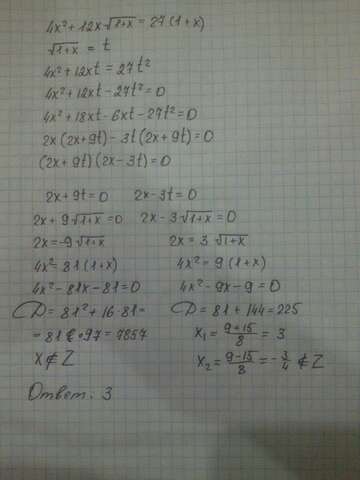 4x² + 12x√(1+x) = 27(1+x)
√(1+x) = t
4x² + 12xt = 27t²
4x² + 12xt - 27t² = 0
4x² + 18xt - 6xt - 27t² = 0
2x(2x+9t) - 3t(2x+9t) = 0
(2x+9t)(2x-3t) = 0
2x+9t = 0 2x-3t = 0
2x + 9√(1+x) = 0 2x - 3√(1+x) = 0
2x = -9√(1+x) 2x = 3√(1+x)
4x² = 81(1+x) 4x² = 9(1+x)
4x² - 81x - 81 = 0 4x² - 9x - 9 = 0
D = 81² + 16·81 = D = 81 + 144 = 225
= 81·97 = 7857 x₁ = (9+15)/8 = 3
x ∉ Z x₂ = (9-15)/8 = -3/4 ∉ Z
Ответ: 3